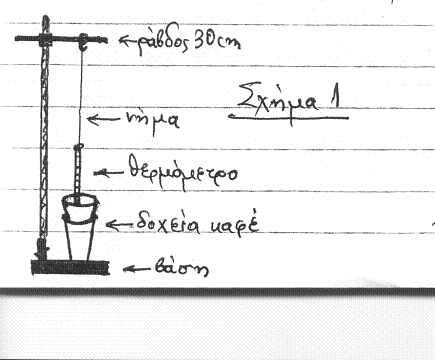 ράβδος 30cm
Σχήμα 1
νήμα
θερμόμετρο
δοχεία καφέ
βάση